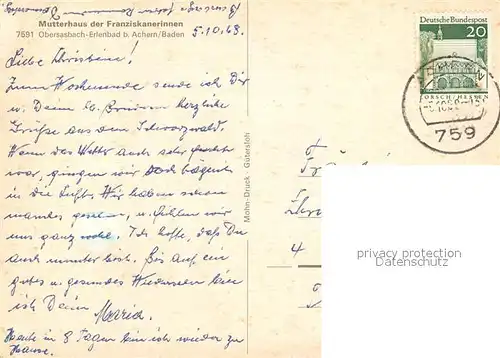 Mutterhaus der Franziskanerinnen
7591 Obersasbach-Erlenbad b. Achern/Baden
5.10.68.
Liebe Christine!
Zum Wochenende sende ich Dir
u. Deinen lb. Brüdern herzliche
Grüße aus dem Schwarzwald.
Wenn das Wetter auch sehr feucht
war, gingen wir doch täglich
in die Luft. Wir haben schon
manches gesehen, u. fühlen wir
uns ganz wohl. Ich hoffe, daß Du
auch munter bist. Bis auf ein
gutes u. gesundes Wiedersehen bin
ich Dein Maria
Heute in 8 Tagen bin ich wieder zu
Hause.
Mohn-Druck · Gütersloh
Deutsche Bundespost
20
LORSCH/HESSEN
759
4
privacy protection
Datenschutz